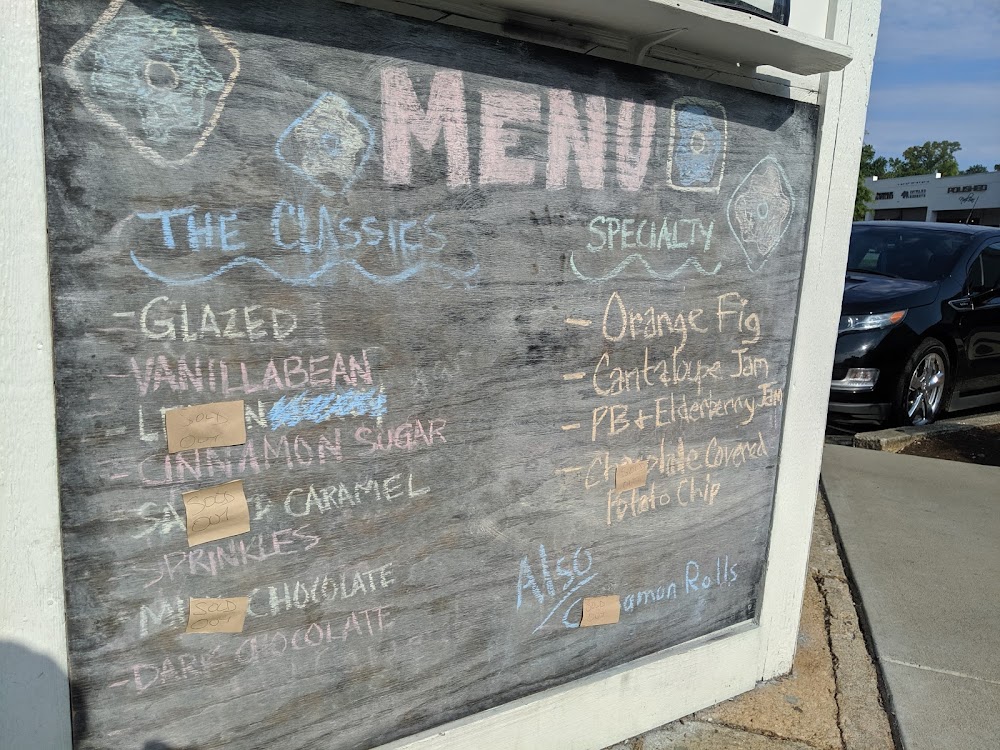 MENU
THE CLASSICS
- GLAZED
- VANILLABEAN
- L N
SOLD
OUT
- CINNAMON SUGAR
- SA D CARAMEL
SOLD
OUT
- SPRINKLES
- MI CHOCOLATE
SOLD
OUT
- DARK CHOCOLATE
SPECIALTY
- Orange Fig
- Cantaloupe Jam
- PB + Elderberry Jam
- Chocolate Covered
Potato Chip
Also
C amon Rolls
POLISHED